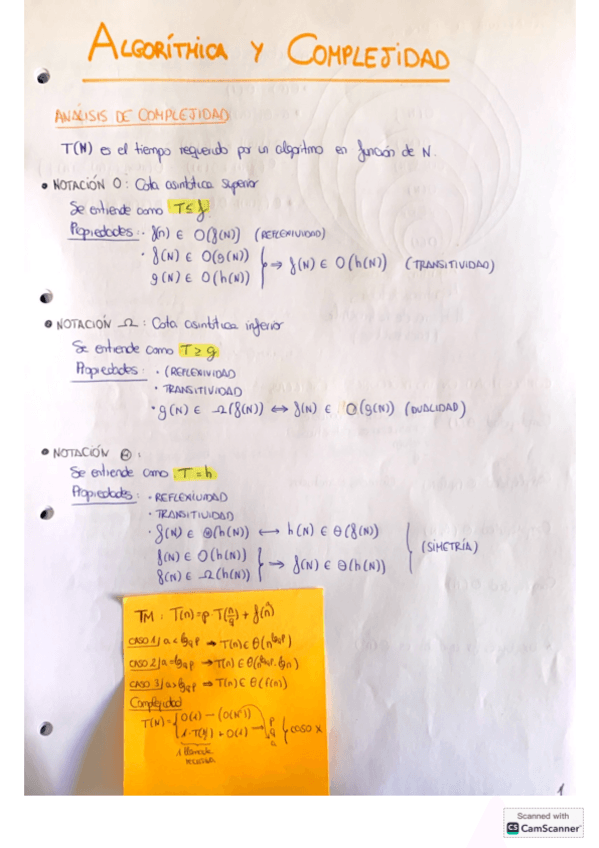 ALGORÍTHMICA Y COMPLEJIDAD
ANÁLISIS DE COMPLEJIDAD
T(N) es el tiempo requerido por un algoritmo en función de N.
• NOTACIÓN O: Cota asintótica superior
Se entiende como T ≤ f
Propiedades: · f(n) ∈ O(f(N)) (REFLEXIVIDAD)
· f(N) ∈ O(g(N))
g(N) ∈ O(h(N)) } → f(N) ∈ O(h(N)) (TRANSITIVIDAD)
• NOTACIÓN Ω: Cota asintótica inferior
Se entiende como T ≥ g
Propiedades: · (REFLEXIVIDAD
· TRANSITIVIDAD
· g(N) ∈ Ω(f(N)) ↔ f(N) ∈ O(g(N)) (DUALIDAD)
• NOTACIÓN Θ:
Se entiende como T = h
Propiedades: · REFLEXIVIDAD
· TRANSITIVIDAD
· f(N) ∈ Θ(h(N)) ↔ h(N) ∈ Θ(f(N))
f(N) ∈ O(h(N))
f(N) ∈ Ω(h(N)) } → f(N) ∈ Θ(h(N)) (SIMETRÍA)
TM: T(n)=p·T(n/q)+f(n)
CASO 1/ a < log_q p → T(n) ∈ Θ(n^log_q p)
CASO 2/ a = log_q p → T(n) ∈ Θ(n^log_q p · log n)
CASO 3/ a > log_q p → T(n) ∈ Θ(f(n))
Complejidad
T(N) = { O(1) — 
1·T( ) + O(1) → p q a } caso x
1 llamada
1
Scanned with
CS CamScanner